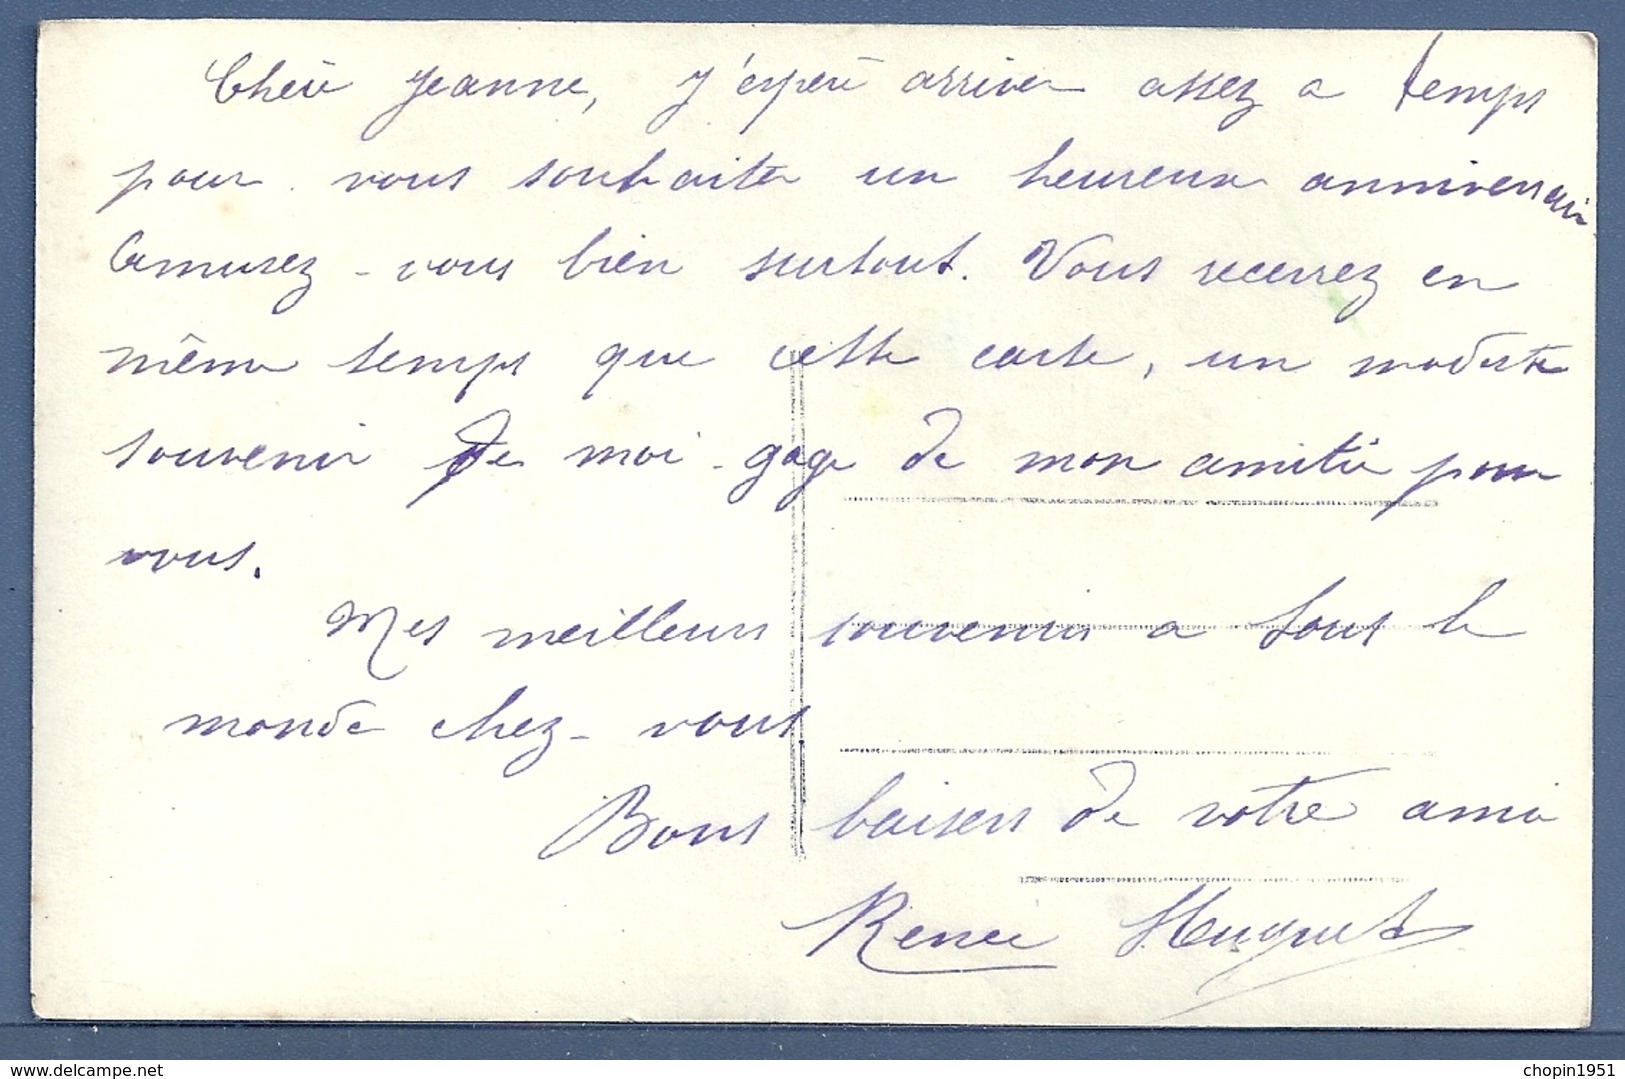 Chère Jeanne, j'espère arriver assez a temps
pour vous souhaiter un heureux anniversair
Amusez-vous bien surtout. Vous recevrez en
même temps que cette carte, un modeste
souvenir de moi - gage de mon amitié pour
vous.
Mes meilleurs souvenirs a tout le
monde chez-vous
Bons baisers de votre amie
Renée Huguet
delcampe.net
chopin1951